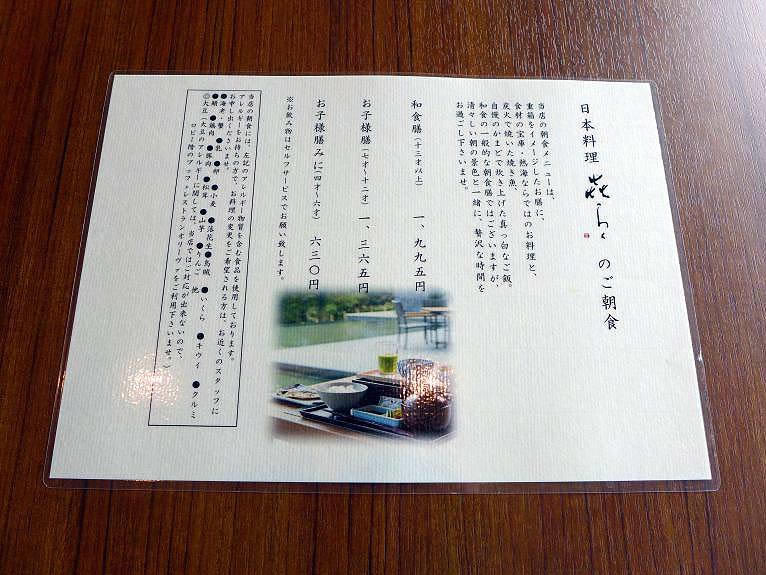 日本料理 㐂らく のご朝食
当店の朝食メニューは、
重箱をイメージしたお膳に、
食材の宝庫・熱海ならではのお料理と、
炭火で焼いた焼き魚、
自慢のかまどで炊き上げた真っ白なご飯。
和食の一般的な朝食膳ではございますが、
清々しい朝の景色と一緒に、贅沢な時間を
お過ごし下さいませ。
和食膳(十三才以上) 一、九九五円
お子様膳(七才〜十二才) 一、三六五円
お子様膳みに(四才〜六才) 六三〇円
※お飲み物はセルフサービスでお願い致します。
当店の朝食には、左記のアレルギー物質を含む食品を使用しております。
アレルギーをお持ちの方で、お料理の変更をご希望される方は、お近くのスタッフに
お申し出くださいませ。
●海老・蟹 ●乳 ●卵 ●小麦 ●落花生 ●烏賊 ●いくら ●キウイ ●クルミ
●鯖 ●鶏肉 ●豚肉 ●松茸 ●山芋 ●りんご 他
◎大豆(大豆のアレルギーに関しては、当店ではご対応が出来ないので、
ロビー階のブッフェレストランオリーヴァをご利用下さいませ。)